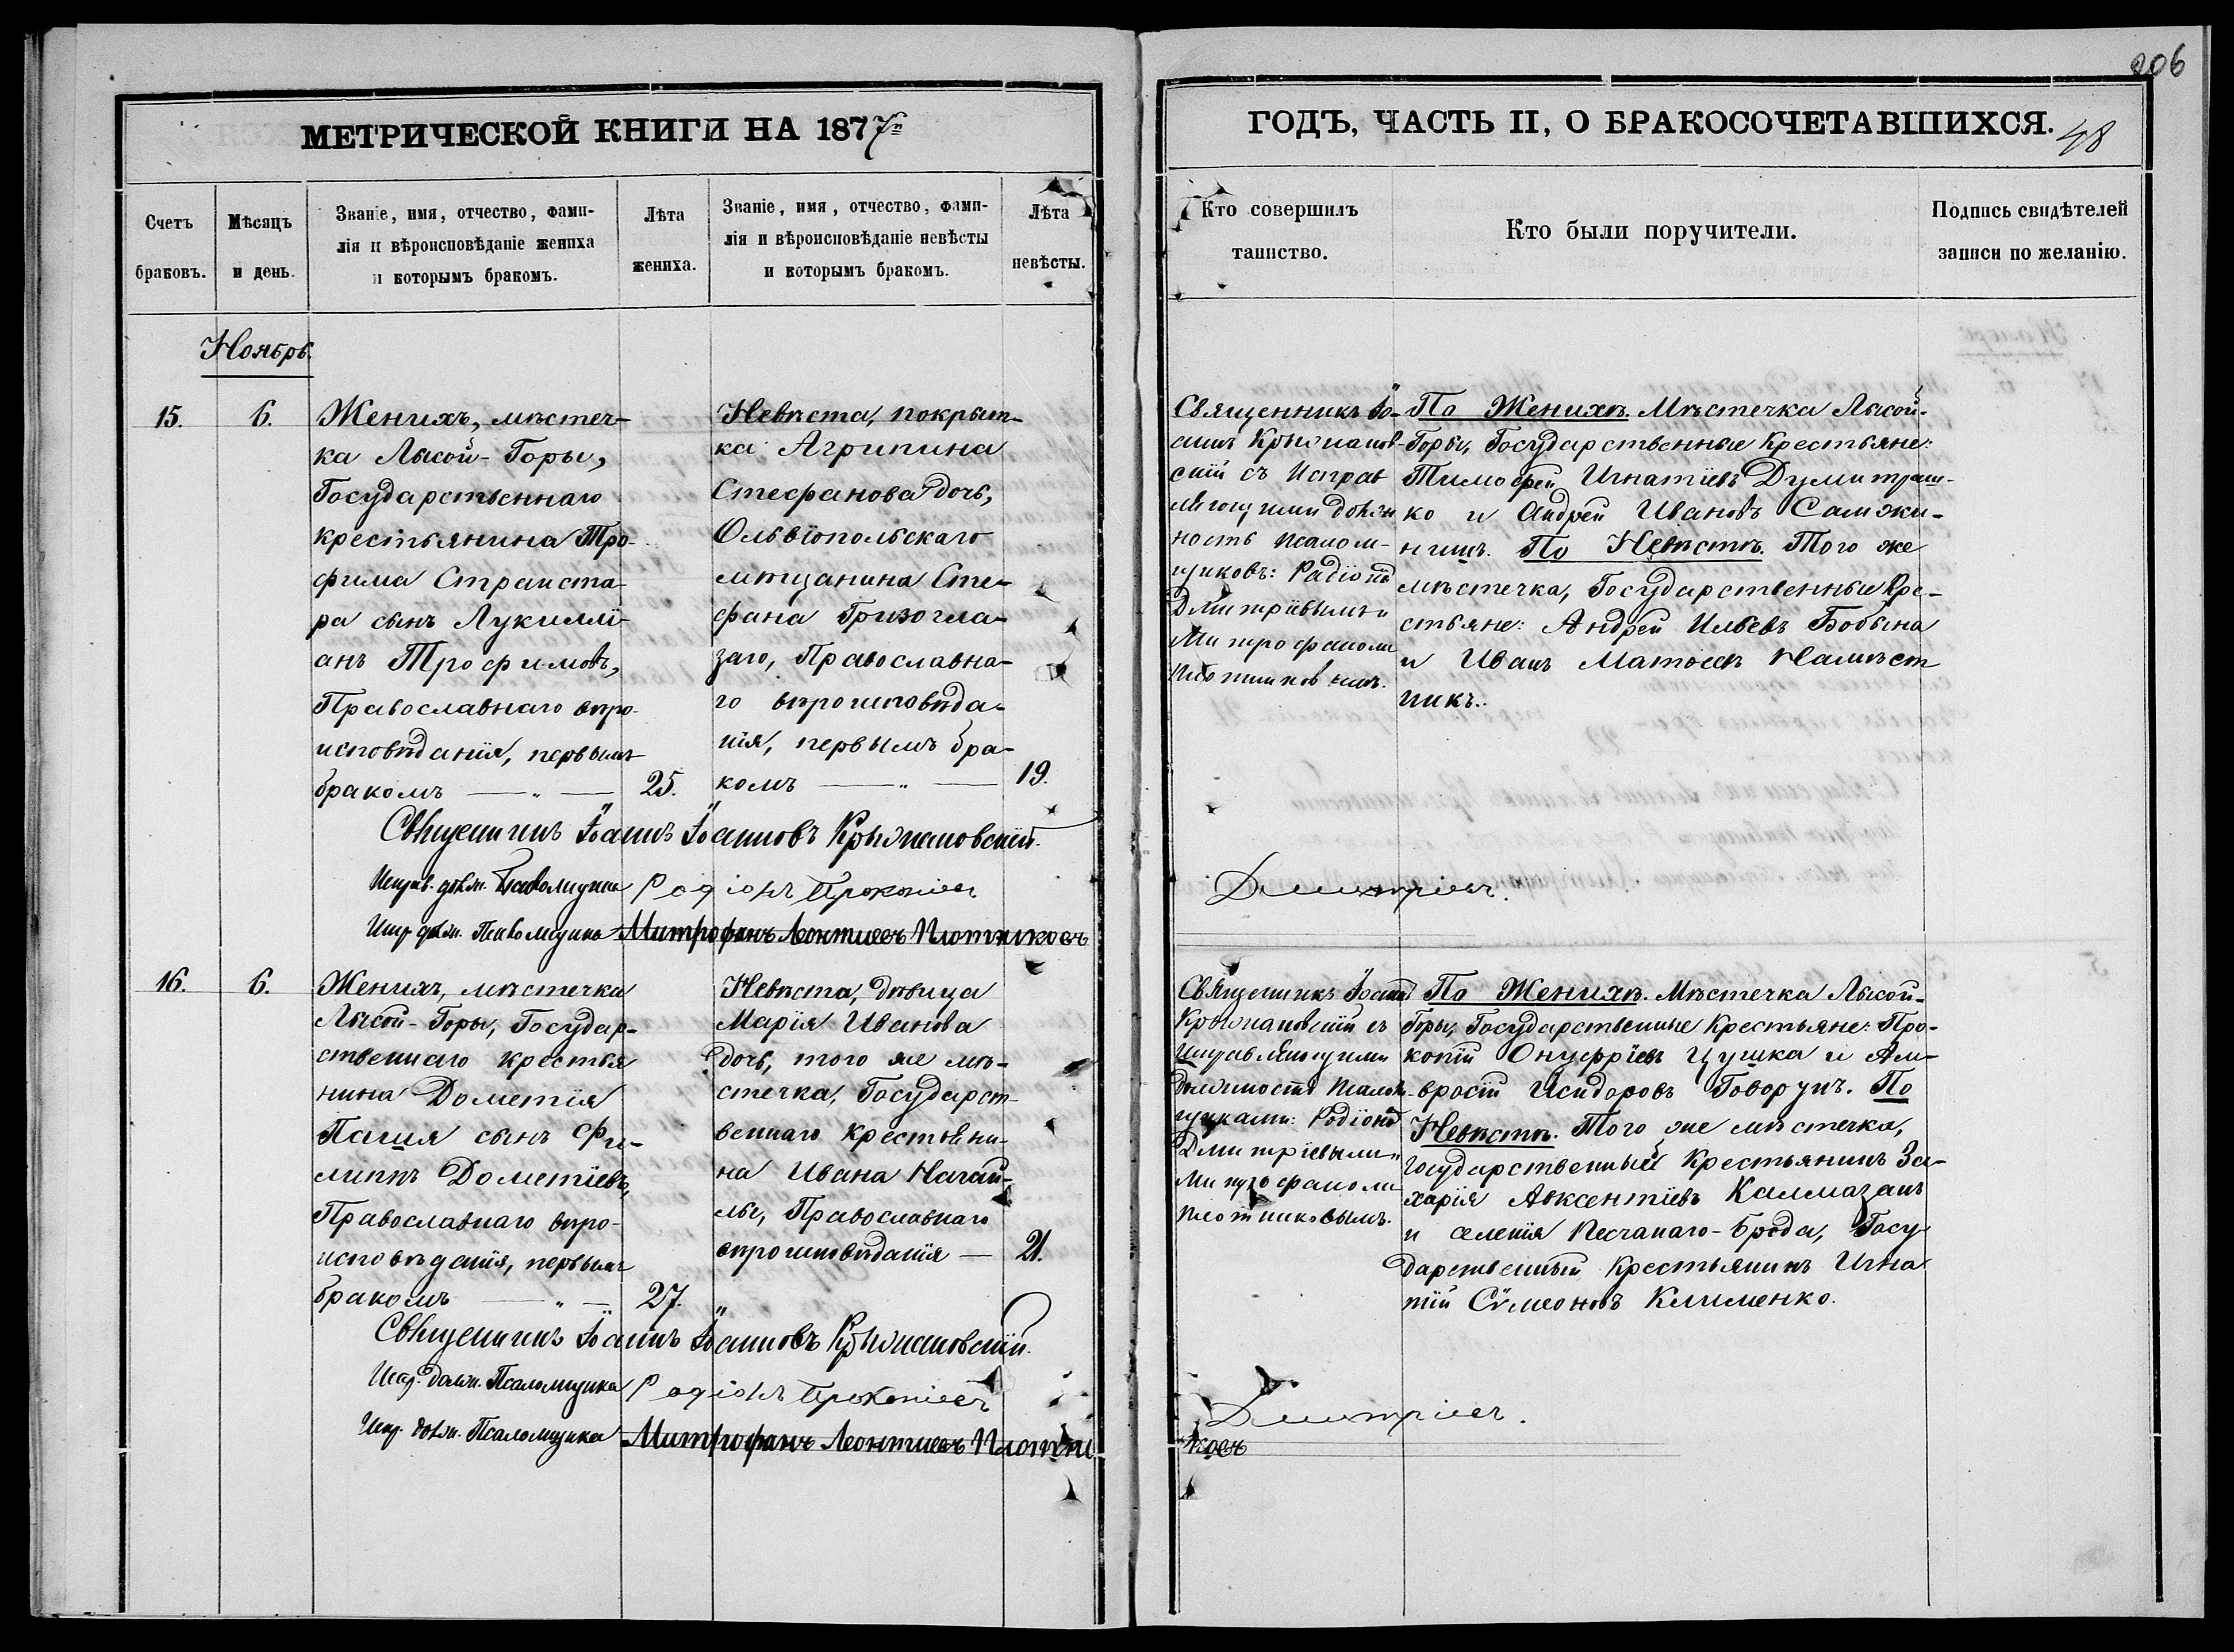 206
МЕТРИЧЕСКОЙ КНИГИ НА 1877
ГОДЪ, ЧАСТЬ II, О БРАКОСОЧЕТАВШИХСЯ.
48
Счетъ
браковъ.
Мѣсяцъ
и день.
Званіе, имя, отчество, фами-
лія и вѣроисповѣданіе жениха
и которымъ бракомъ.
Лѣта
жениха.
Званіе, имя, отчество, фами-
лія и вѣроисповѣданіе невѣсты
и которымъ бракомъ.
Лѣта
невѣсты.
Кто совершилъ
таинство.
Кто были поручители.
Подпись свидѣтелей
записи по желанію.
Ноябрь.
15.
6.
Женихъ, мѣстеч-
ка Лысой-Горы,
Государственнаго
крестьянина Тро-
фима Страиста
ра сынъ Лукилли
анъ Трофимовъ,
Православнаго вѣро-
исповѣданія, первымъ
бракомъ — „ —
25.
Невѣста, покрыт-
ка Агрипина
Стефанова дочь,
Ольвіопольскаго
мѣщанина Сте-
фана Гризогла-
заго, Православна-
го вѣроисповѣда-
нія, первымъ бра-
комъ — „ —
19.
Священникъ Іо-
аннъ Крыжанов-
скій съ исправ
ляющими должн
ность псалом-
щиковъ: Радіоно
Дмитріевымъ и
Митрофаномъ
Плотниковымъ.
По Женихѣ. Мѣстечка Лысой-
Горы, Государственные Крестьяне:
Тимофей Игнатіевъ Думитраш-
ко и Андрей Ивановъ Самжи-
нишъ. По Невѣстѣ. Того же
мѣстечка, Государственные Кре-
стьяне: Андрей Ильевъ Бобына
и Иванъ Матѳеевъ Намѣст
никъ.
Священникъ Іоаннъ Іоанновъ Крыжановскій.
Исправ. долж. Псаломщика Родіонъ Прокопіевъ
Дмитріевъ.
Испр. долж. Псаломщика Митрофанъ Леонтиевъ Плотниковъ
16.
6.
Женихъ, мѣстечка
Лысой-Горы, Государ-
ственнаго крестья
нина Дометія
Пагия сынъ Фи-
липпъ Дометіевъ,
Православнаго вѣро-
исповѣданія, первымъ
бракомъ — „ —
27.
Невѣста, дѣвица
Марія Иванова
дочь, того же мѣ-
стечка, Государст-
веннаго крестьяни-
на Ивана Нагай-
лы, Православнаго
вѣроисповѣданія —
21.
Священникъ Іоаннъ
Крыжановскій съ
Исправляющими
должность псалом-
щиками: Родіоно
Дмитріевымъ и
Митрофаномъ
Плотниковымъ.
По Женихѣ. Мѣстечка Лысой-
Горы, Государственные Крестьяне: Про-
копій Онуфріевъ Цушка и Ам-
вросій Исидоровъ Говорунъ. По
Невѣстѣ. Того же мѣстечка,
Государственный Крестьянинъ За-
харія Авксентіевъ Калмазанъ
и селенія Песчанаго-Брода, Госу
дарственный Крестьянинъ Игна
тій Сѵмеоновъ Клименко.
Священникъ Іоаннъ Іоанновъ Крыжановскій.
Испр. долж. Псаломщика Родіонъ Прокопіевъ
Дмитріевъ.
Испр. долж. Псаломщика Митрофанъ Леонтиевъ Плотни
ковъ